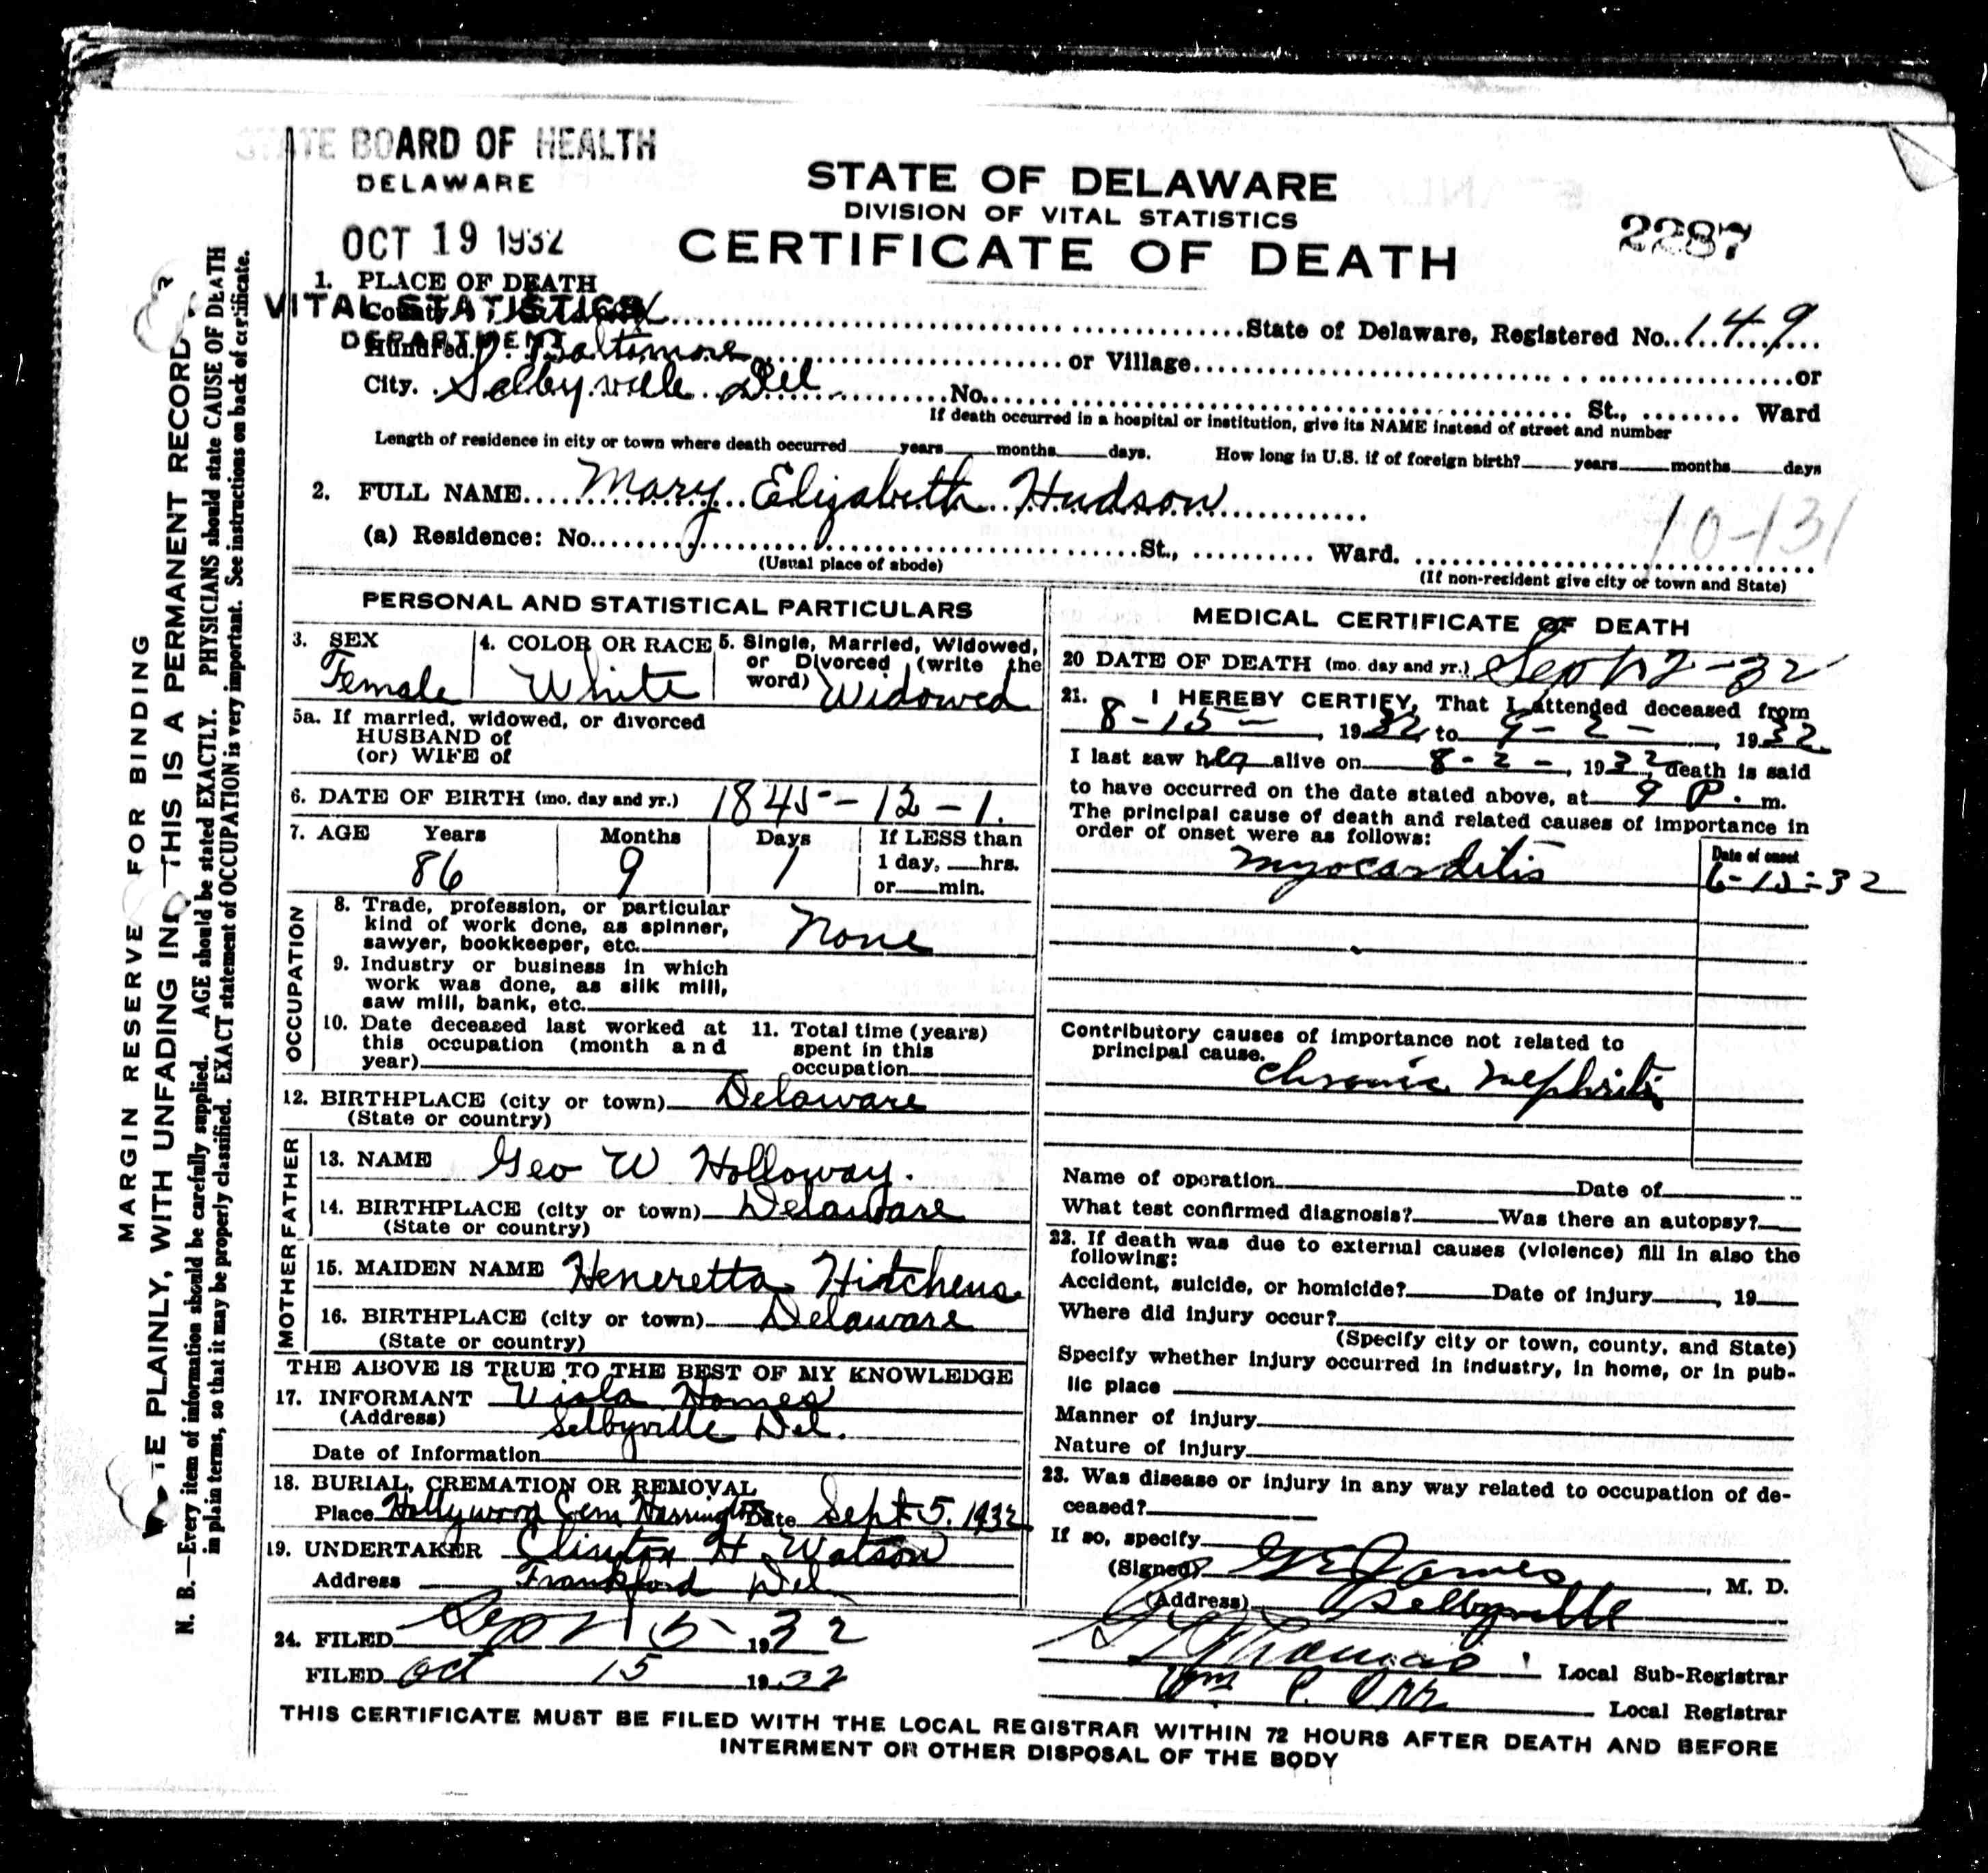 STATE BOARD OF HEALTH
DELAWARE
OCT 19 1932
VITAL STATISTICS
DEPARTMENT
STATE OF DELAWARE
DIVISION OF VITAL STATISTICS
CERTIFICATE OF DEATH
2287
1. PLACE OF DEATH
County
State of Delaware, Registered No. 149
Hundred Baltimore or Village or
City. Selbyville Del No. St., Ward
If death occurred in a hospital or institution, give its NAME instead of street and number
Length of residence in city or town where death occurred years months days. How long in U.S. if of foreign birth? years months days
2. FULL NAME Mary Elizabeth Hudson
10-131
(a) Residence: No. St., Ward.
(Usual place of abode) (If non-resident give city or town and State)
PERSONAL AND STATISTICAL PARTICULARS
3. SEX 4. COLOR OR RACE 5. Single, Married, Widowed, or Divorced (write the word)
Female White Widowed
5a. If married, widowed, or divorced
HUSBAND of
(or) WIFE of
6. DATE OF BIRTH (mo. day and yr.) 1845-12-1.
7. AGE Years Months Days If LESS than
1 day, hrs.
or min.
86 9 1
OCCUPATION
8. Trade, profession, or particular
kind of work done, as spinner,
sawyer, bookkeeper, etc. None
9. Industry or business in which
work was done, as silk mill,
saw mill, bank, etc.
10. Date deceased last worked at
this occupation (month and
year)
11. Total time (years)
spent in this
occupation
12. BIRTHPLACE (city or town) Delaware
(State or country)
FATHER
13. NAME Geo W Holloway.
14. BIRTHPLACE (city or town) Delaware
(State or country)
MOTHER
15. MAIDEN NAME Heneretta Hitchens
16. BIRTHPLACE (city or town) Delaware
(State or country)
THE ABOVE IS TRUE TO THE BEST OF MY KNOWLEDGE
17. INFORMANT Viola Homes
(Address) Selbyville Del.
Date of Information
18. BURIAL, CREMATION OR REMOVAL
Place Hollywood Cem Harrington Date Sept 5. 1932
19. UNDERTAKER Clinton H. Watson
Address Frankford Del
24. FILED Sept 5- 1932
FILED Oct 15 1932
MEDICAL CERTIFICATE OF DEATH
20 DATE OF DEATH (mo. day and yr.) Sept 2-32
21. I HEREBY CERTIFY, That I attended deceased from
8-15-, 1932 to 9-2-, 1932
I last saw her alive on 8-2-, 1932, death is said
to have occurred on the date stated above, at 9 P. m.
The principal cause of death and related causes of importance in
order of onset were as follows:
Date of onset
Myocarditis 6-15-32
Contributory causes of importance not related to
principal cause.
Chronic Nephritis
Name of operation Date of
What test confirmed diagnosis? Was there an autopsy?
22. If death was due to external causes (violence) fill in also the
following:
Accident, suicide, or homicide? Date of injury , 19
Where did injury occur?
(Specify city or town, county, and State)
Specify whether injury occurred in industry, in home, or in pub-
lic place
Manner of injury
Nature of injury
23. Was disease or injury in any way related to occupation of de-
ceased?
If so, specify
(Signed) G E James, M. D.
(Address) Selbyville
Thomas Local Sub-Registrar
Wm P. Orr Local Registrar
THIS CERTIFICATE MUST BE FILED WITH THE LOCAL REGISTRAR WITHIN 72 HOURS AFTER DEATH AND BEFORE
INTERMENT OR OTHER DISPOSAL OF THE BODY
MARGIN RESERVE FOR BINDING
TE PLAINLY, WITH UNFADING INK THIS IS A PERMANENT RECORD
N. B.—Every item of information should be carefully supplied. AGE should be stated EXACTLY. PHYSICIANS should state CAUSE OF DEATH
in plain terms, so that it may be properly classified. EXACT statement of OCCUPATION is very important. See instructions on back of certificate.